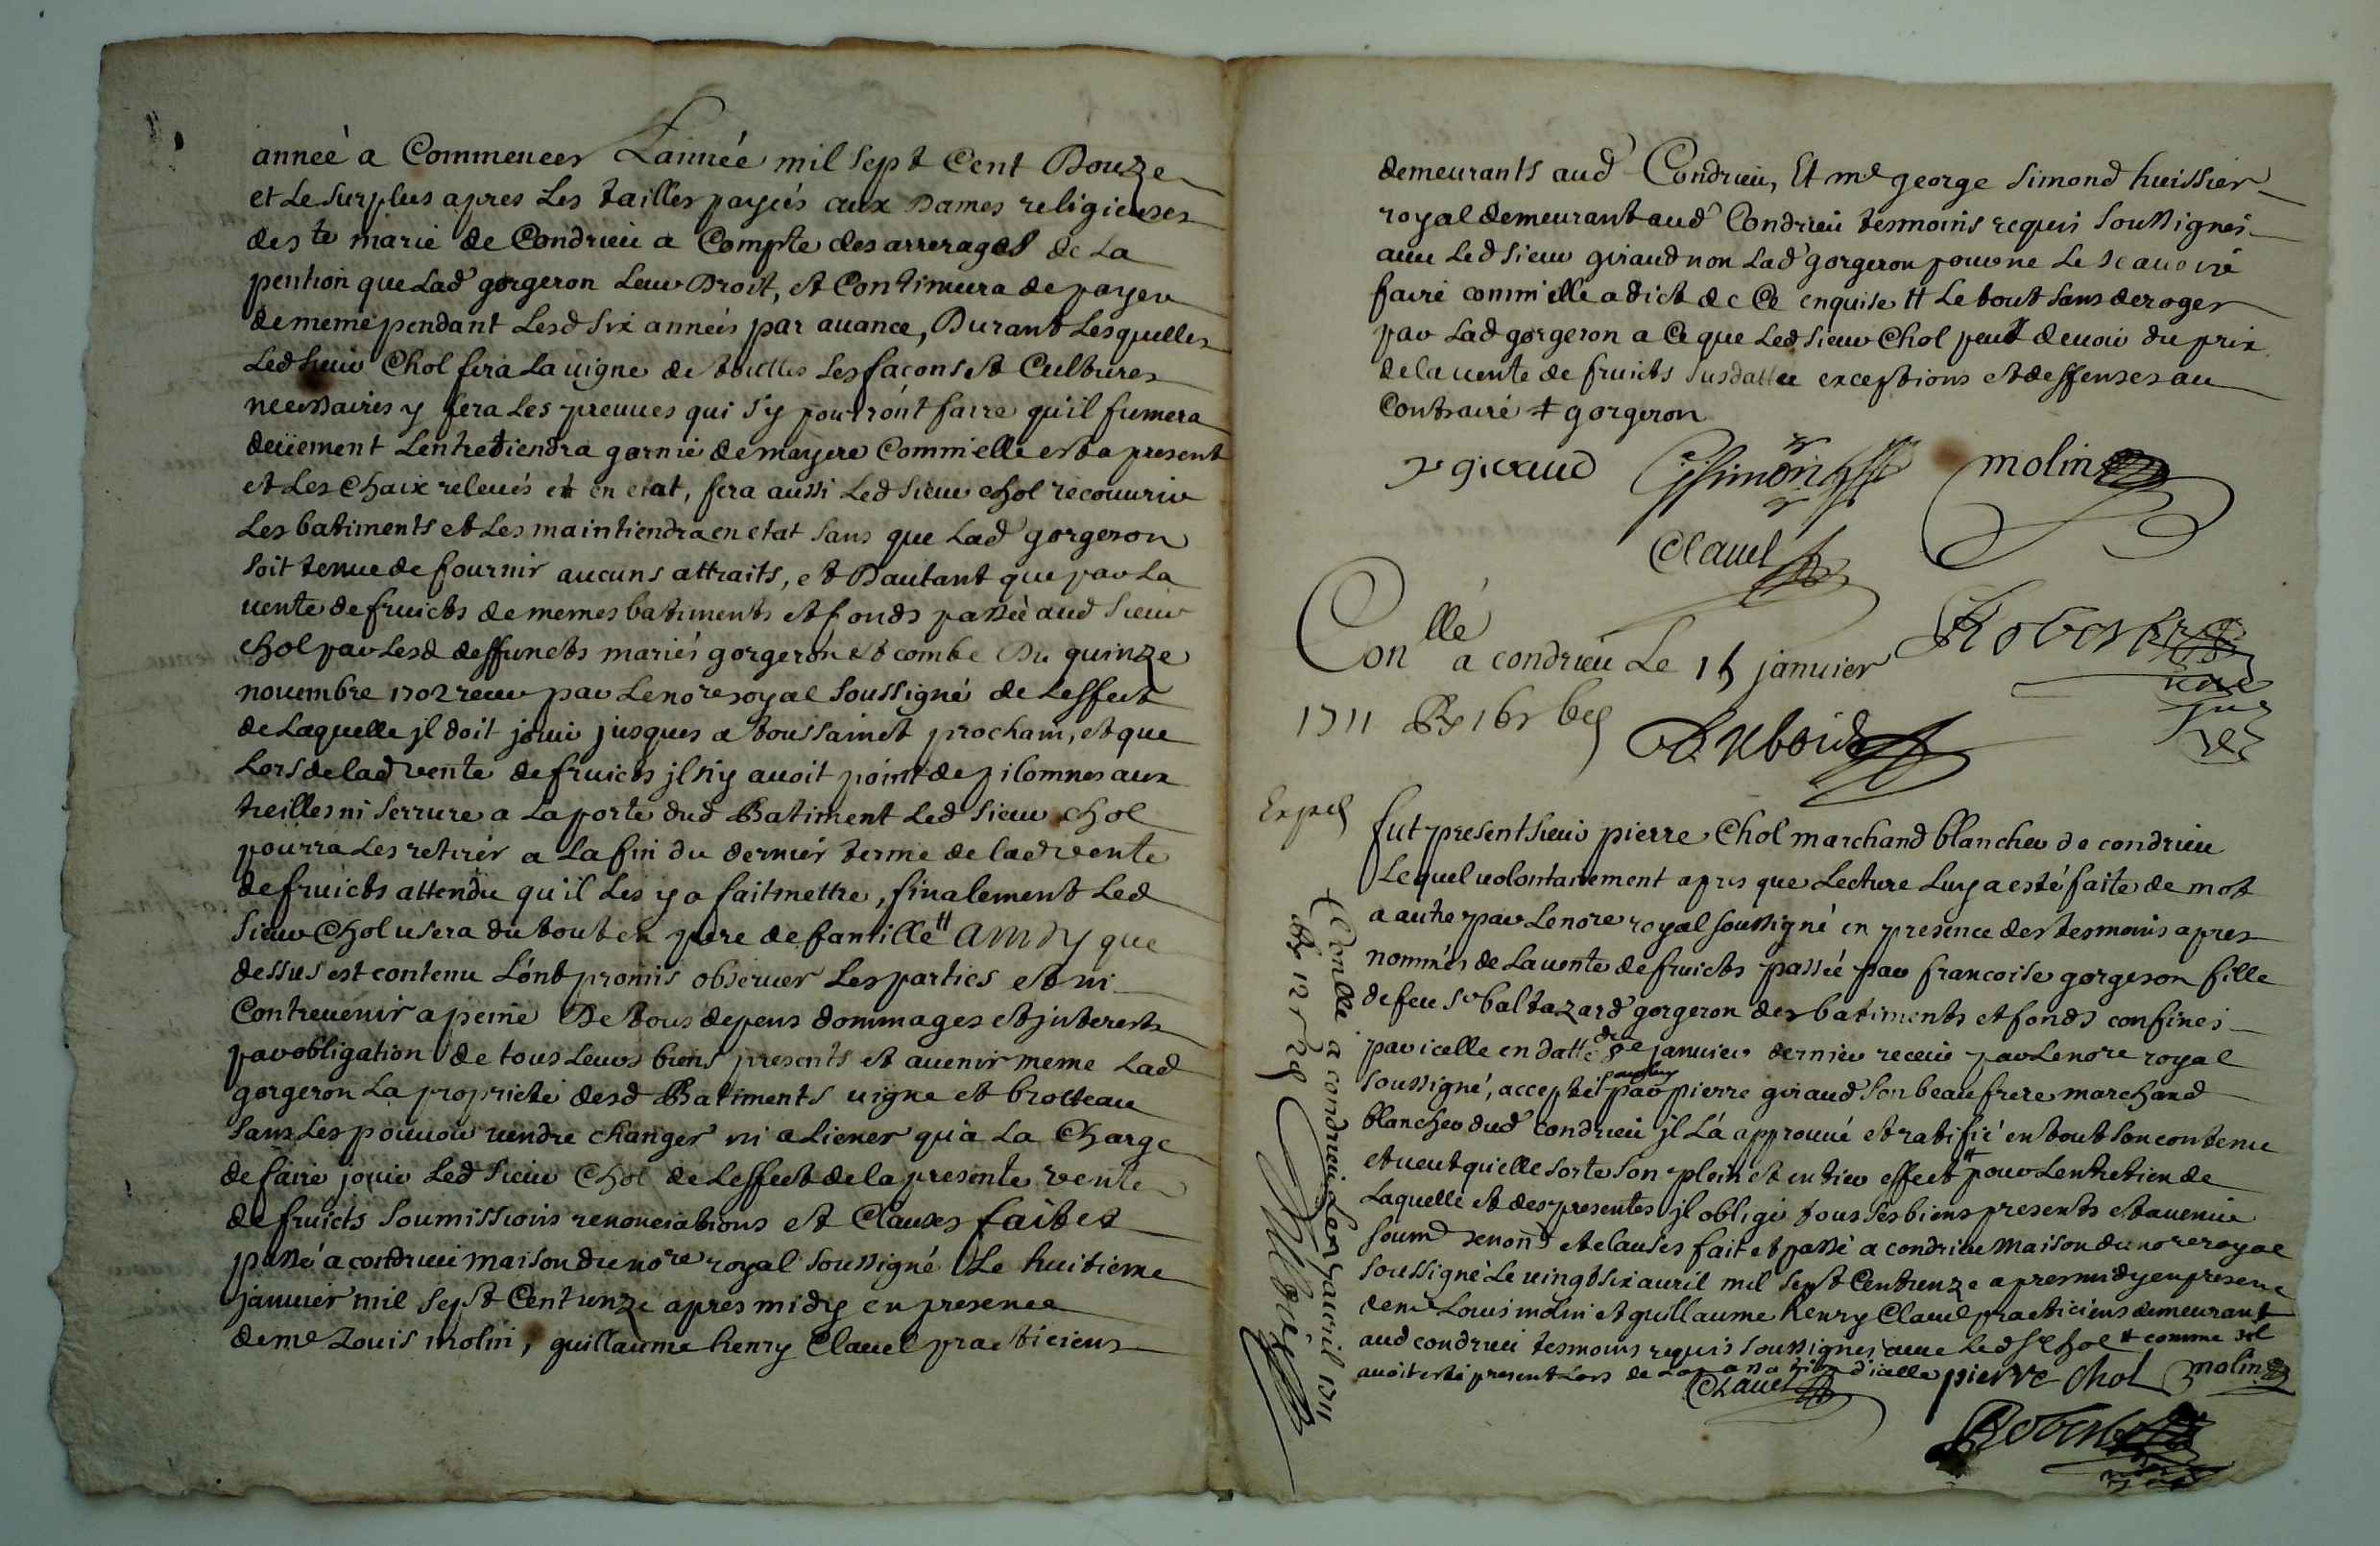 anneé a Commencer Lannée mil sept Cent Douze
et Le surplus apres Les tailles payeés aux Dames religieuses
de ste marie de Condrieu a Compte des arrerages de La
pention que Lad gorgeron Leur Droit, et Continuera de payer
de meme pendant Lesd six anneés par auance, Durant Lesquelles
Led sieur Chol fera La uigne de touttes Les facons et Cultures
necessaires y fera Les preuues qui s'y pourront faire qu'il fumera
deüement Lentretiendra garnie de mayere Comm'elle est a present
et Les Chaix releués et en etat, fera aussi Led sieur chol recouurir
Les batiments et Les maintiendra en etat sans que Lad gorgeron
soit tenue de fournir aucuns attraits, et Dautant que par La
uente de fruicts de memes batiments et fonds passeé aud sieur
chol par Lesd deffuncts mariés gorgeron et combe Du quinze
nouembre 1702 receu par Le nore royal soussigné de Leffect
de Laquelle jl doit jouir jusques a toussainct prochain, et que
Lors de lad vente de fruicts jl n'y auoit point de pilomnes aux
treilles ni serrure a La porte dud Batiment Led sieur chol
pourra Les retirer a La fin du dernier terme de lad vente
de fruicts attendu qu'il Les y a fait mettre, finalement Led
sieur Chol usera du tout en pere de famille # Ainsy que
dessus est contenu L'ont promis obseruer Les parties et ni
Contreuenir a peine De tous depens dommages et jnterests
par obligation de tous Leurs biens presents et auenir meme Lad
gorgeron La proprieté desd Batiments uigne et brotteau
sans Les pouuoir uendre changer ni aliener qu'a La Charge
de faire jouir Led sieur Chol de Leffect de la presente vente
de fruicts soumissions renonciations et Clauses faites
passé a condrieu maison du nore royal soussigné Le huitieme
januier mil sept Cent unze apres midy en presence
de me Louis molin, guillaume henry Clauel practiciens
demeurants aud Condrieu, Et me george simond huissier
royal demeurant aud Condrieu tesmoins requis soussignés
auec Led sieur giraud non Lad gorgeron pour ne Le scauoir
faire comm'elle a dict de Ce enquise # Le tout sans deroger
par Lad gorgeron a Ce que Led sieur Chol peut deuoir du prix
de la uente de fruicts susdattée exceptions et deffenses au
Contraire # gorgeron
p giraud Gsimond molin
Clauel
Conllé a condrieu Le 15 januier
Robert
nore
1711
Duboid
Exped
fut present sieur pierre Chol marchand blancher de condrieu
Lequel uolontairement apres que Lecture Luy a esté faite de mot
a autre par Le nore royal soussigné en presence des tesmoins apres
nommés de La uente de fruicts passeé par francoise gorgeron fille
de feu sr baltazard gorgeron des batiments et fonds confinés
par icelle en datte du 8e januier dernier receue par Le nore royal
soussigné, accepteé pour luy par pierre giraud son beau frere marchand
blancher dud condrieu jl L'a approuué et ratifié en tout son contenu
et ueut qu'elle sorte son plein et entier effect # pour Lentretien de
Laquelle et des presentes jl oblige tous ses biens presents et auenir
soumd renond et clauses fait et passé a condrieu maison du nore royal
soussigné Le uingt six auril mil sept Cent unze apres midy en presence
de me Louis molin et guillaume henry Clauel practiciens demeurant
aud condrieu tesmoins requis soussignés auec Led sr chol # comme s'il
auoit esté present Lors de La d'icelle pierre chol molin
Clauel
Robert
Conllé a condrieu Le auril 1711